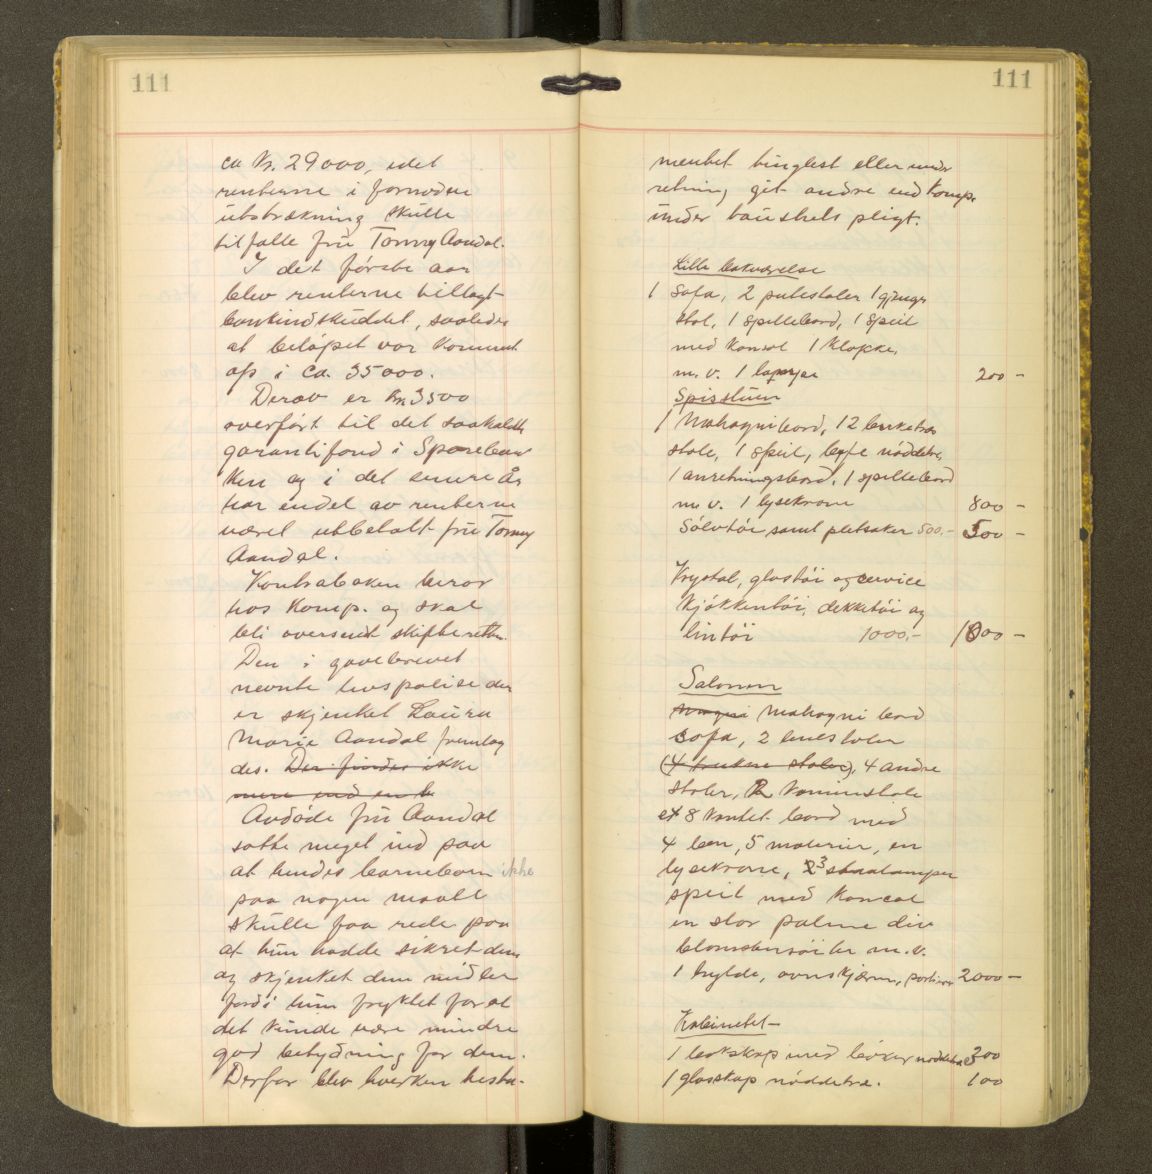 111
ca Kr. 29000, idet
renterne i fornøden
utstrækning skulle
tilfalle fru Tonny Aandal.
I det første aar
blev renterne tillagt
bankindskuddet, saaledes
at beløpet var kommet
op i ca. 35000.
Derav er kr. 3500
overført til det saakaldte
garantifond i Spareban
ken og i det senere år
har endel av renterne
været utbetalt fru Tonny
Aandal.
Kontraboken beror
hos Komp. og skal
bli oversendt skifteretten.
Den i gavebrevet
nevnte livspolise den
er skjenket Laura
Marie Aandal fremlag
des. Der findes ikke
mere end en b
Avdøde fru Aandal
satte meget ind paa
at hendes barnebarn ikke
paa nogen maate
skulle faa rede paa
at hun hadde sikret dem
og skjenket dem midler
fordi hun fryktet for at
det kunde være mindre
god betydning for dem.
Derfor blev hverken testa-
111
mentet tinglest eller under
retning git andre end Komp.
under taushets pligt.
Lille bakværelse
1 Sofa, 2 putestoler 1 gynge
stol, 1 spillebord, 1 speil
med konsol 1 klokke,
m.v. 1 lampe 200 -
Spisstuen
1 Mahognibord, 12 birketræ
stole, 1 speil, buffe nøddetre,
1 anretningsbord, 1 spillebord
m.v. 1 lysekrone 800 -
Sølvtøi samt pletsaker 500,- 500 -
Krystal, glastøi og service
Kjøkkentøi, dekketøi og
lintøi 1000,- 1000 -
Salonen
Mahogni bord
sofa, 2 lenestoler
(4 trukne stoler), 4 andre
stoler, 2 kaminstole
et 8 kantet bord med
4 ben, 5 malerier, en
lysekrone, 3 staalamper
speil med konsol
en stor palme div
blomstersøiler m.v.
1 hylde, ovnskjærm, portierer 2000 -
Kabinettet -
1 bokskap med bøker nøddetræ 300
1 glasskap nøddetræ. 100